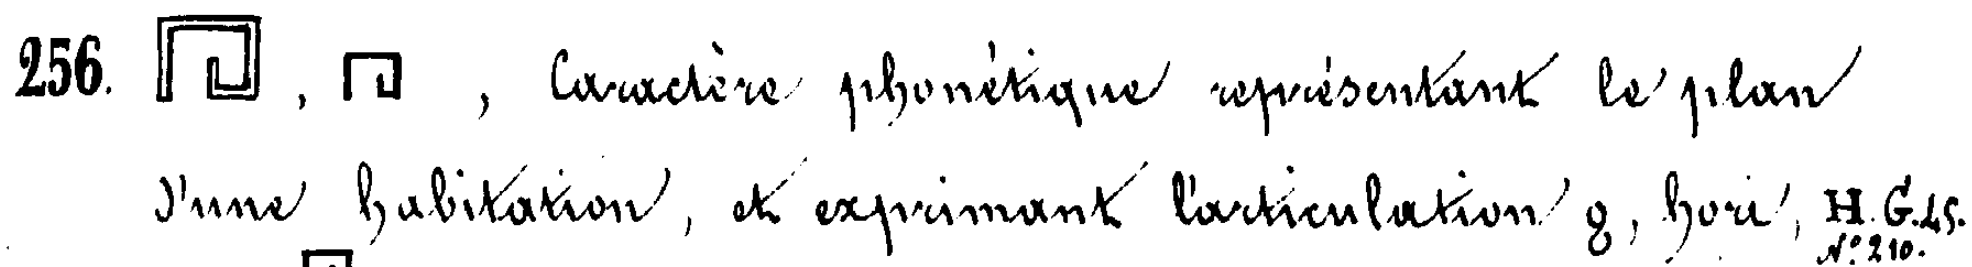 256. 𓉔, 𓉔, Caractère phonétique représentant le plan
d'une habitation, et exprimant l'articulation ϩ, hori, H. G. 45.
N.° 210.